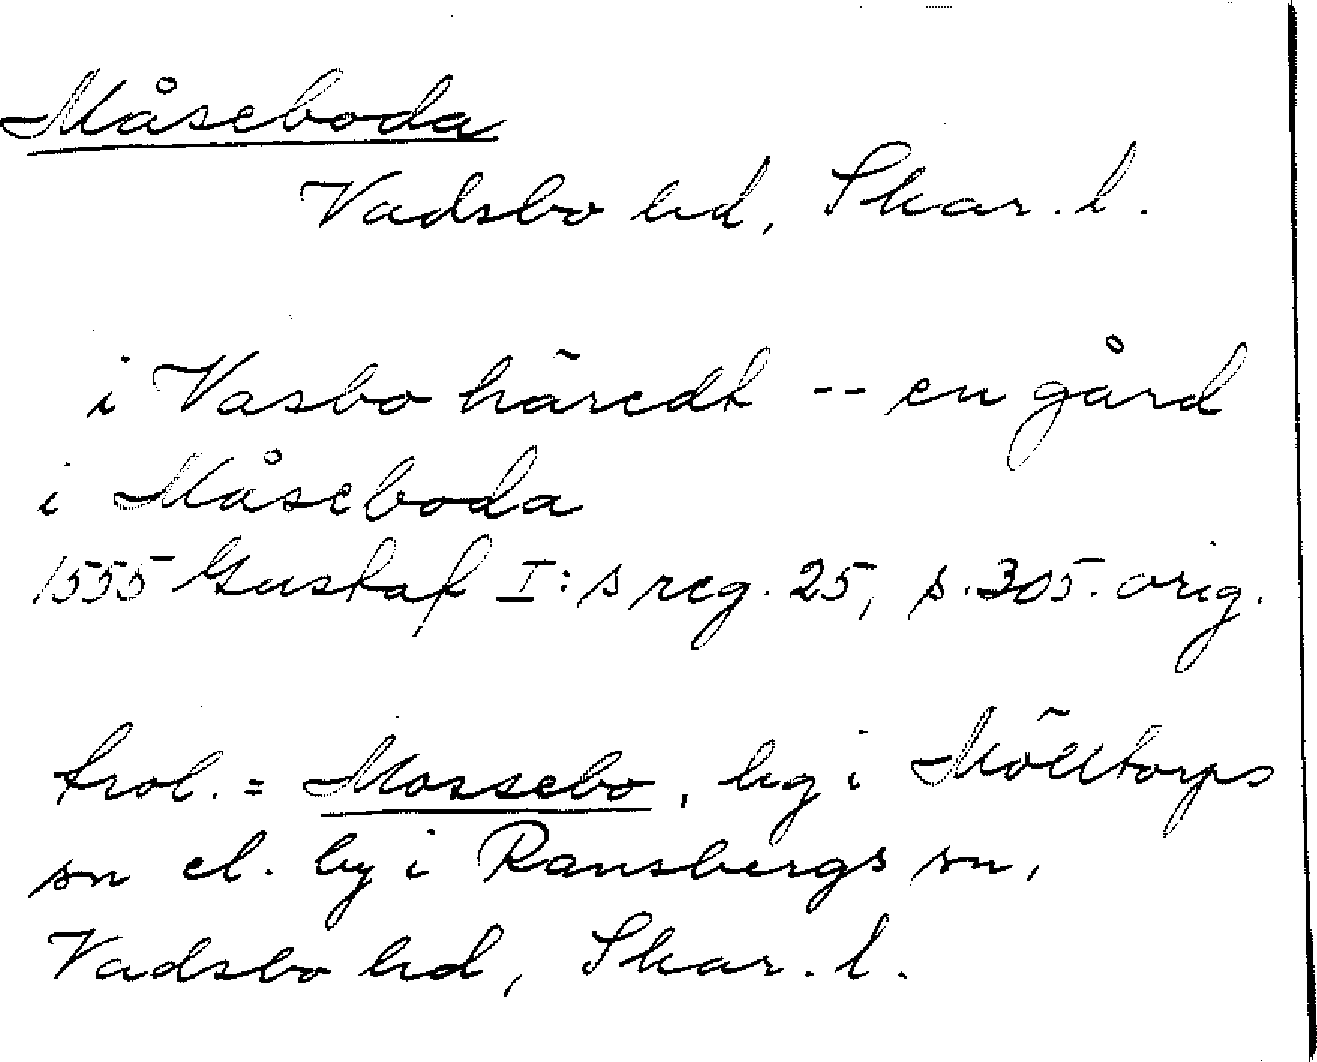 Måseboda
Vadsbo hd, Skar. l.
i Vasbo häredt -- en gård
i Måseboda
1555 Gustaf I:s reg. 25, s. 305. orig.
trol. = Mossebo, hg i Mölltorps
sn el. by i Ransbergs sn,
Vadsbo hd, Skar. l.